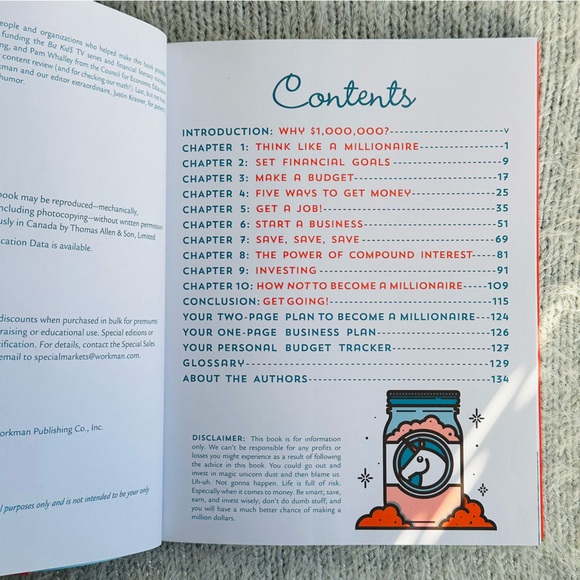 eople and organizations who helped make this book possible
funding the Biz Kid$ TV series and financial literacy
ng, and Pam Whalley from the Council for Economic Education
content review (and for checking our math!). Last, but not least
kman and our editor extraordinaire, Justin Krasner, for
humor.
ook may be reproduced—mechanically,
including photocopying—without written permission
usly in Canada by Thomas Allen & Son, Limited.
cation Data is available.
discounts when purchased in bulk for premiums
raising or educational use. Special editions or
ification. For details, contact the Special Sales
email to specialmarkets@workman.com.
orkman Publishing Co., Inc.
l purposes only and is not intended to be your only
Contents
INTRODUCTION: WHY $1,000,000? v
CHAPTER 1: THINK LIKE A MILLIONAIRE 1
CHAPTER 2: SET FINANCIAL GOALS 9
CHAPTER 3: MAKE A BUDGET 17
CHAPTER 4: FIVE WAYS TO GET MONEY 25
CHAPTER 5: GET A JOB! 35
CHAPTER 6: START A BUSINESS 51
CHAPTER 7: SAVE, SAVE, SAVE 69
CHAPTER 8: THE POWER OF COMPOUND INTEREST 81
CHAPTER 9: INVESTING 91
CHAPTER 10: HOW NOT TO BECOME A MILLIONAIRE 109
CONCLUSION: GET GOING! 115
YOUR TWO-PAGE PLAN TO BECOME A MILLIONAIRE 124
YOUR ONE-PAGE BUSINESS PLAN 126
YOUR PERSONAL BUDGET TRACKER 127
GLOSSARY 129
ABOUT THE AUTHORS 134
DISCLAIMER: This book is for information
only. We can't be responsible for any profits or
losses you might experience as a result of following
the advice in this book. You could go out and
invest in magic unicorn dust and then blame us.
Uh-uh. Not gonna happen. Life is full of risk.
Especially when it comes to money. Be smart; save,
earn, and invest wisely; don't do dumb stuff; and
you will have a much better chance of making a
million dollars.